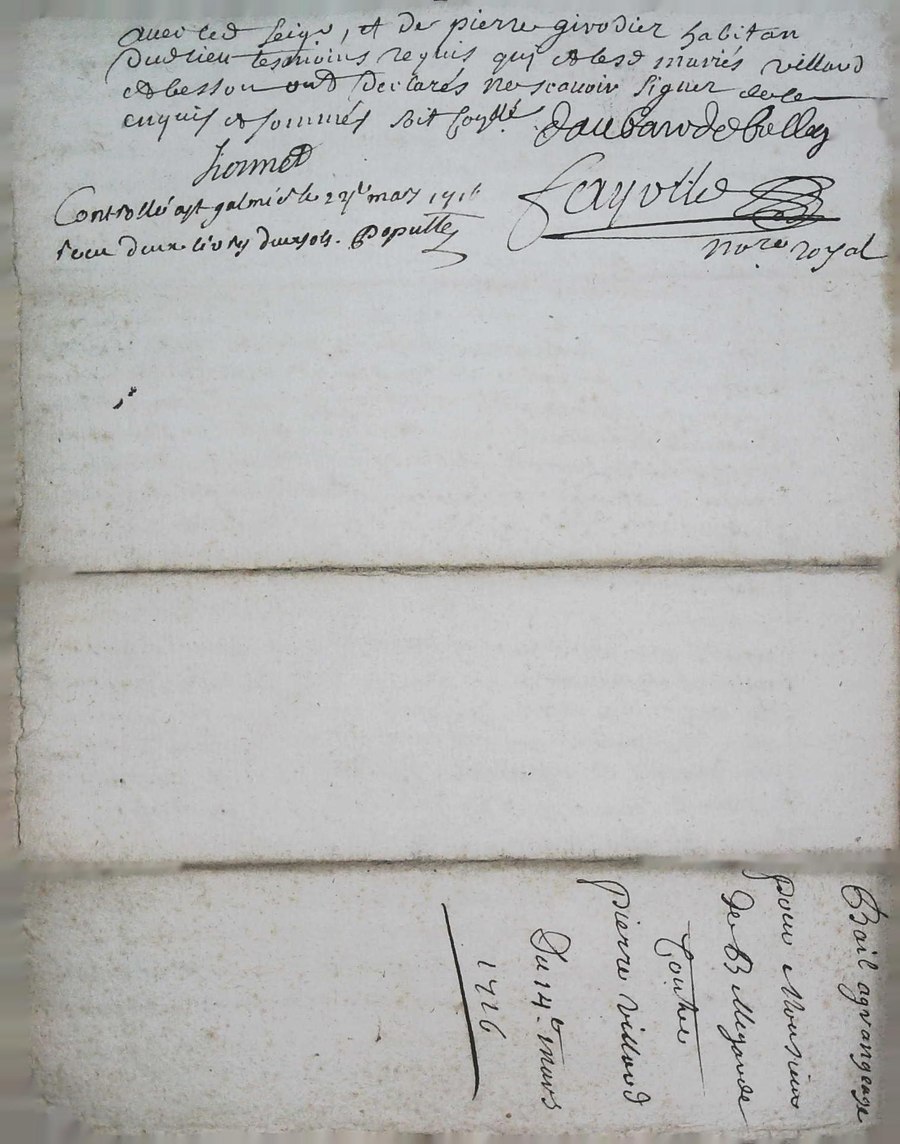 avec led seigr, et de pierre givodier habitan
dud lieu tesmoins requis qui et lesd mariés villard
et besson ont déclarés ne scavoir signer de ce
enquis et sommés soit
Controllé a st galmié le 22e mars 1716
receu deux livres deux sols. Populle
notre royal
Bail a grangeage
pour Monsieur
de Bellegarde
Contre
pierre villard
Du 14e mars
1716